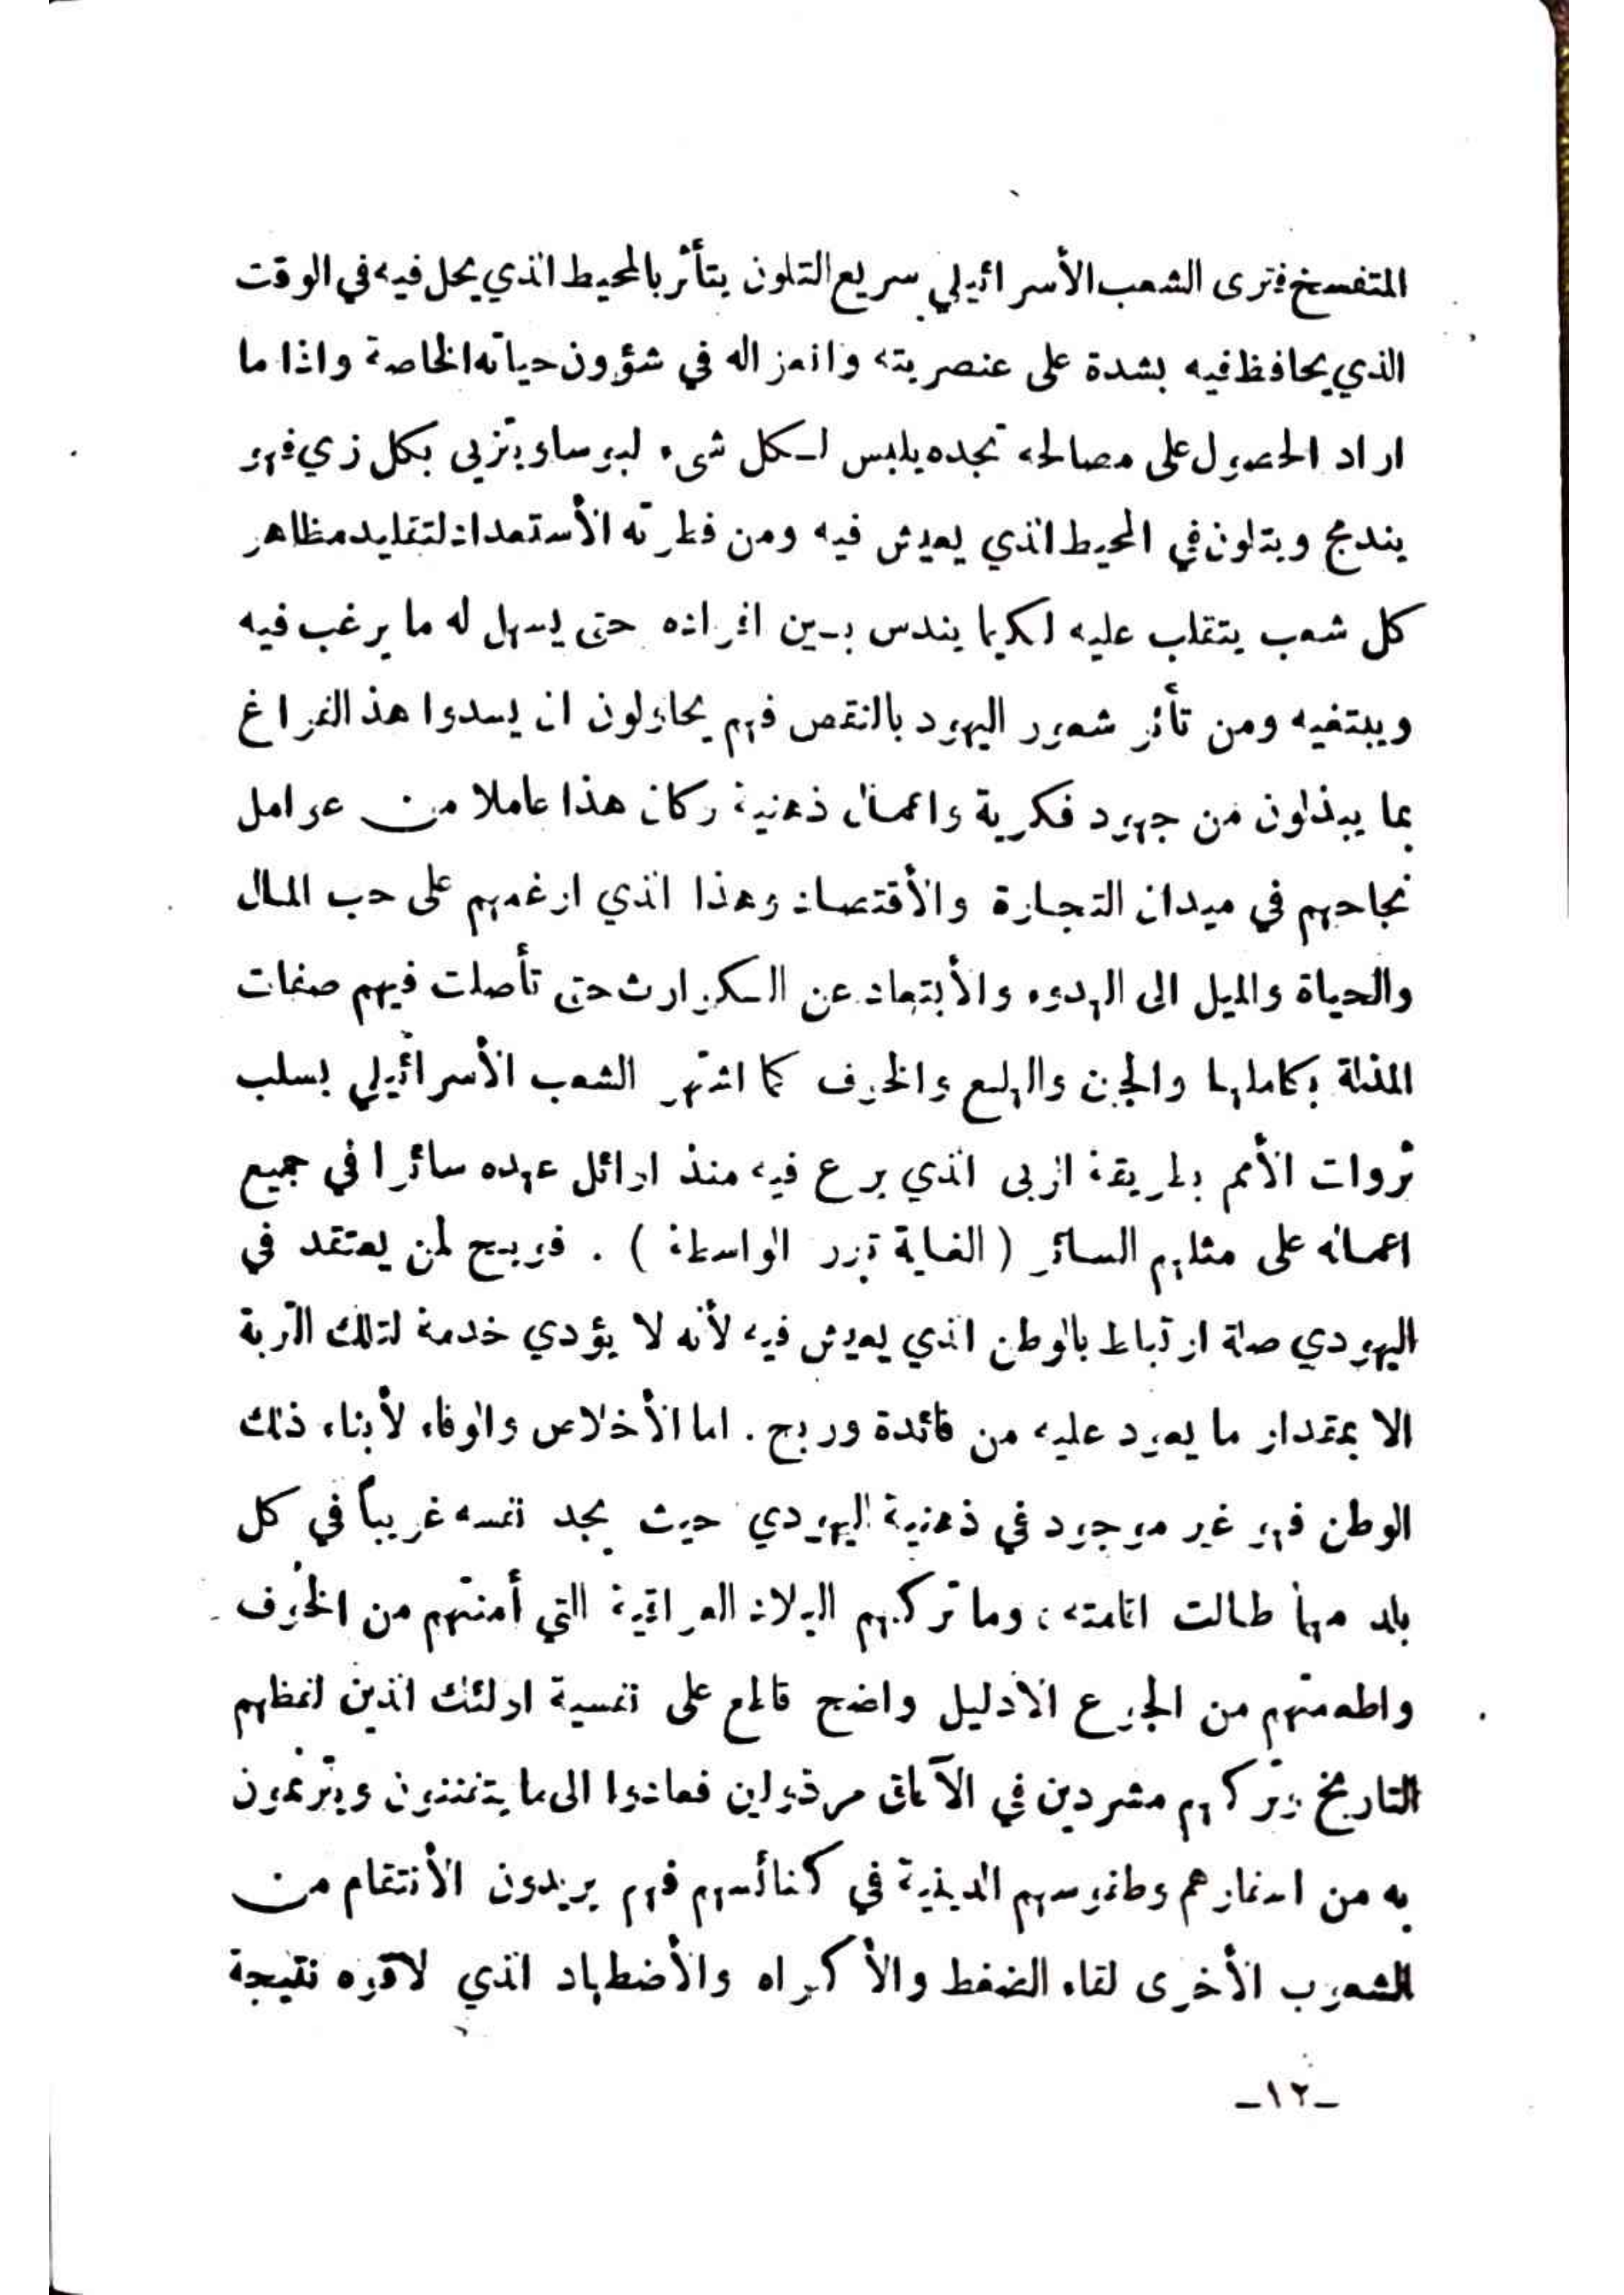 المتفسخ فترى الشعب الأسرائيلي سريع التلون يتأثر بالمحيط الذي يحل فيه في الوقت
الذي يحافظ فيه بشدة على عنصريته وانعزاله في شؤون حياته الخاصة واذا ما
اراد الحصول على مصالحه تجده يلبس لكل شيء لبوسا ويتزيى بكل زي فهو
يندمج ويتلون في المحيط الذي يعيش فيه ومن فطرته الأستعداد لتقليد مظاهر
كل شعب يتقلب عليه لكيما يندس بين افراده حتى يسهل له ما يرغب فيه
ويبتغيه ومن تأثر شعور اليهود بالنقص فهم يحاولون ان يسدوا هذ الفراغ
بما يبذلون من جهود فكرية واعمال ذهنية وكان هذا عاملا من عوامل
نجاحهم في ميدان التجارة والأقتصاد وهذا الذي ارغمهم على حب المال
والحياة والميل الى الهدوء والأبتعاد عن الكوارث حتى تأصلت فيهم صفات
المذلة بكاملها والجبن والهلع والخوف كما اشتهر الشعب الأسرائيلي بسلب
ثروات الأمم بطريقة الربى الذي برع فيه منذ اوائل عهده سائرا في جميع
اعماله على مثلهم السائر ( الغاية تبرر الواسطة ) . فويح لمن يعتقد في
اليهودي صلة ارتباط بالوطن الذي يعيش فيه لأنه لا يؤدي خدمة لتلك التربة
الا بمقدار ما يعود عليه من فائدة وربح . اما الأخلاص والوفاء لأبناء ذلك
الوطن فهو غير موجود في ذهنية اليهودي حيث يجد نفسه غريباً في كل
بلد مهما طالت اقامته ، وما تركهم البلاد العراقية التي أمنتهم من الخوف
واطعمتهم من الجوع الا دليل واضح قاطع على نفسية اولئك الذين لفظهم
التاريخ وتركهم مشردين في الآفاق مرذولين فعادوا الى ما يتغننون ويترنمون
به من اسفارهم وطقوسهم الدينية في كنائسهم فهم يريدون الأنتقام من
الشعوب الأخرى لقاء الضغط والأكراه والأضطهاد الذي لاقوه نتيجة
ـ١٢ـ